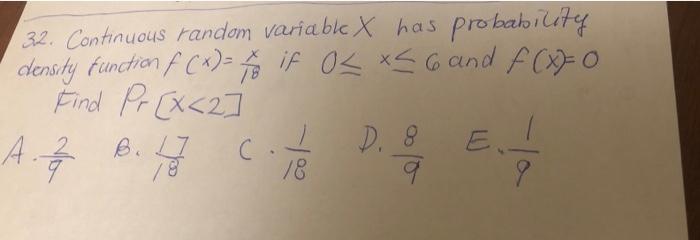 32. Continuous random variable X has probability
density function f(x)= x/18 if 0≤ x≤ 6 and f(x)=0
Find Pr[X<2]
A. 2/9 B. 17/18 C. 1/18 D. 8/9 E. 1/9